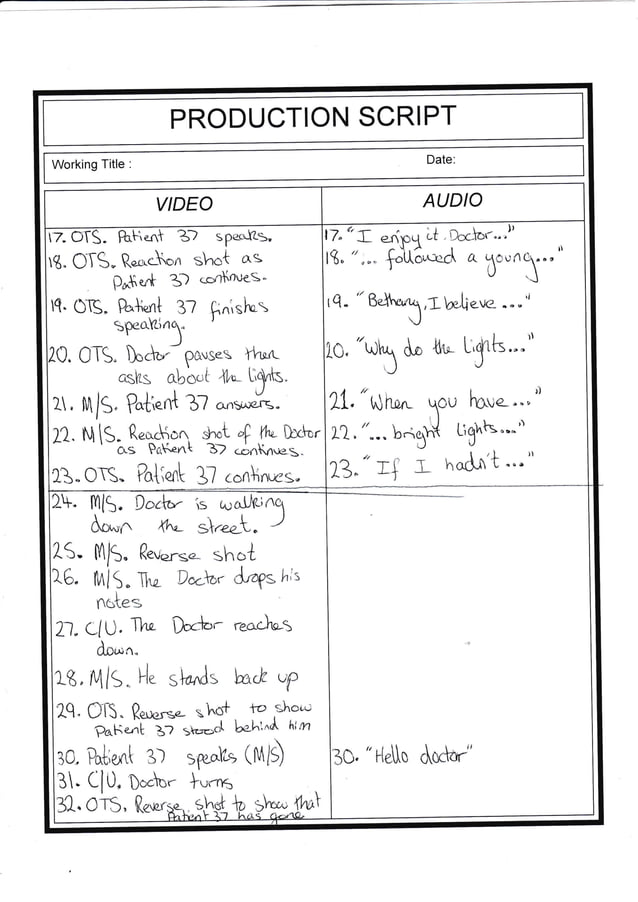 PRODUCTION SCRIPT
Working Title :
Date:
VIDEO
AUDIO
17. OTS. Patient 37 speaks.
18. OTS. Reaction shot as
Patient 37 continues.
19. OTS. Patient 37 finishes
speaking.
20. OTS. Doctor pauses then
asks about the lights.
21. M/S. Patient 37 answers.
22. M/S. Reaction shot of the Doctor
as Patient 37 continues.
23. OTS. Patient 37 continues.
24. M/S. Doctor is walking
down the street.
25. M/S. Reverse shot
26. M/S. The Doctor drops his
notes
27. C/U. The Doctor reaches
down.
28. M/S. He stands back up
29. OTS. Reverse shot to show
Patient 37 stood behind him
30. Patient 37 speaks (M/S)
31. C/U. Doctor turns
32. OTS. Reverse shot to show that
Patient 37 has gone
17. "I enjoy it Doctor..."
18. "... followed a young..."
19. "Bethany, I believe ..."
20. "Why do the lights..."
21. "When you have ..."
22. "... bright lights...."
23. "If I hadn't ..."
30. "Hello doctor"